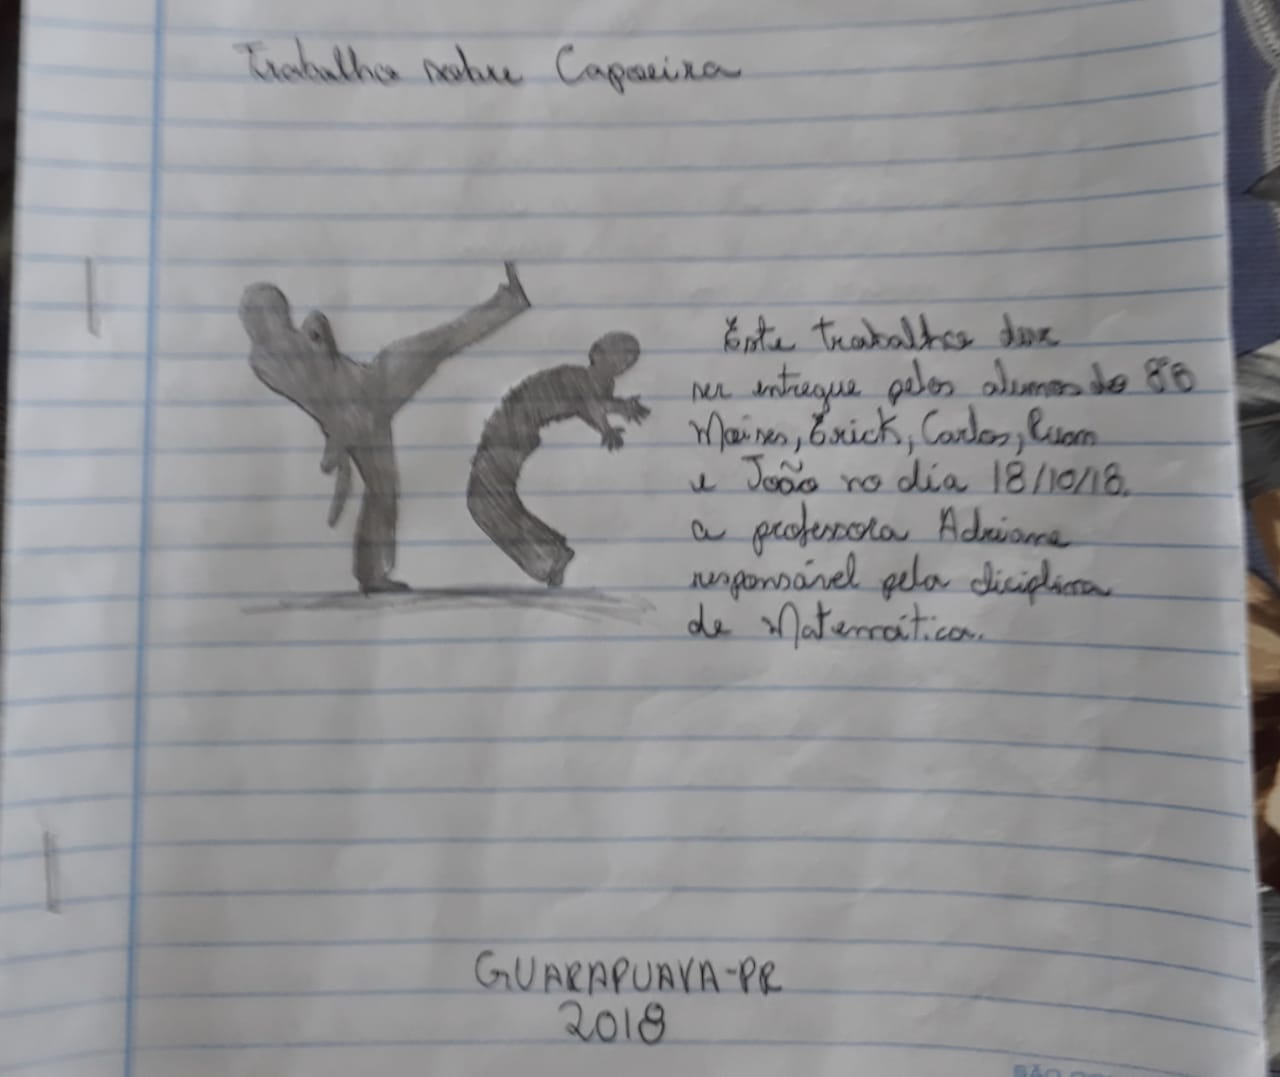 Trabalho sobre Capoeira
Este trabalho deve
ser entregue pelos alunos do 8º B
Moises, Erick, Carlos, Ruan
e João no dia 18/10/18.
a professora Adriane
responsável pela diciplina
de Matemática.
GUARAPUAVA-PR
2018
SÃO